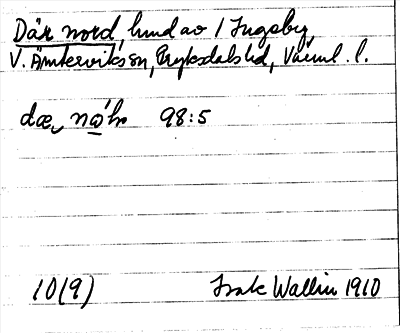 Där nord, hund av / Ingeby,
V. Ämtervik sn, Fryksdals hd, Värml. l.
dæ, nǿ̱hr 98:5
10(9) Isak Wallin 1910